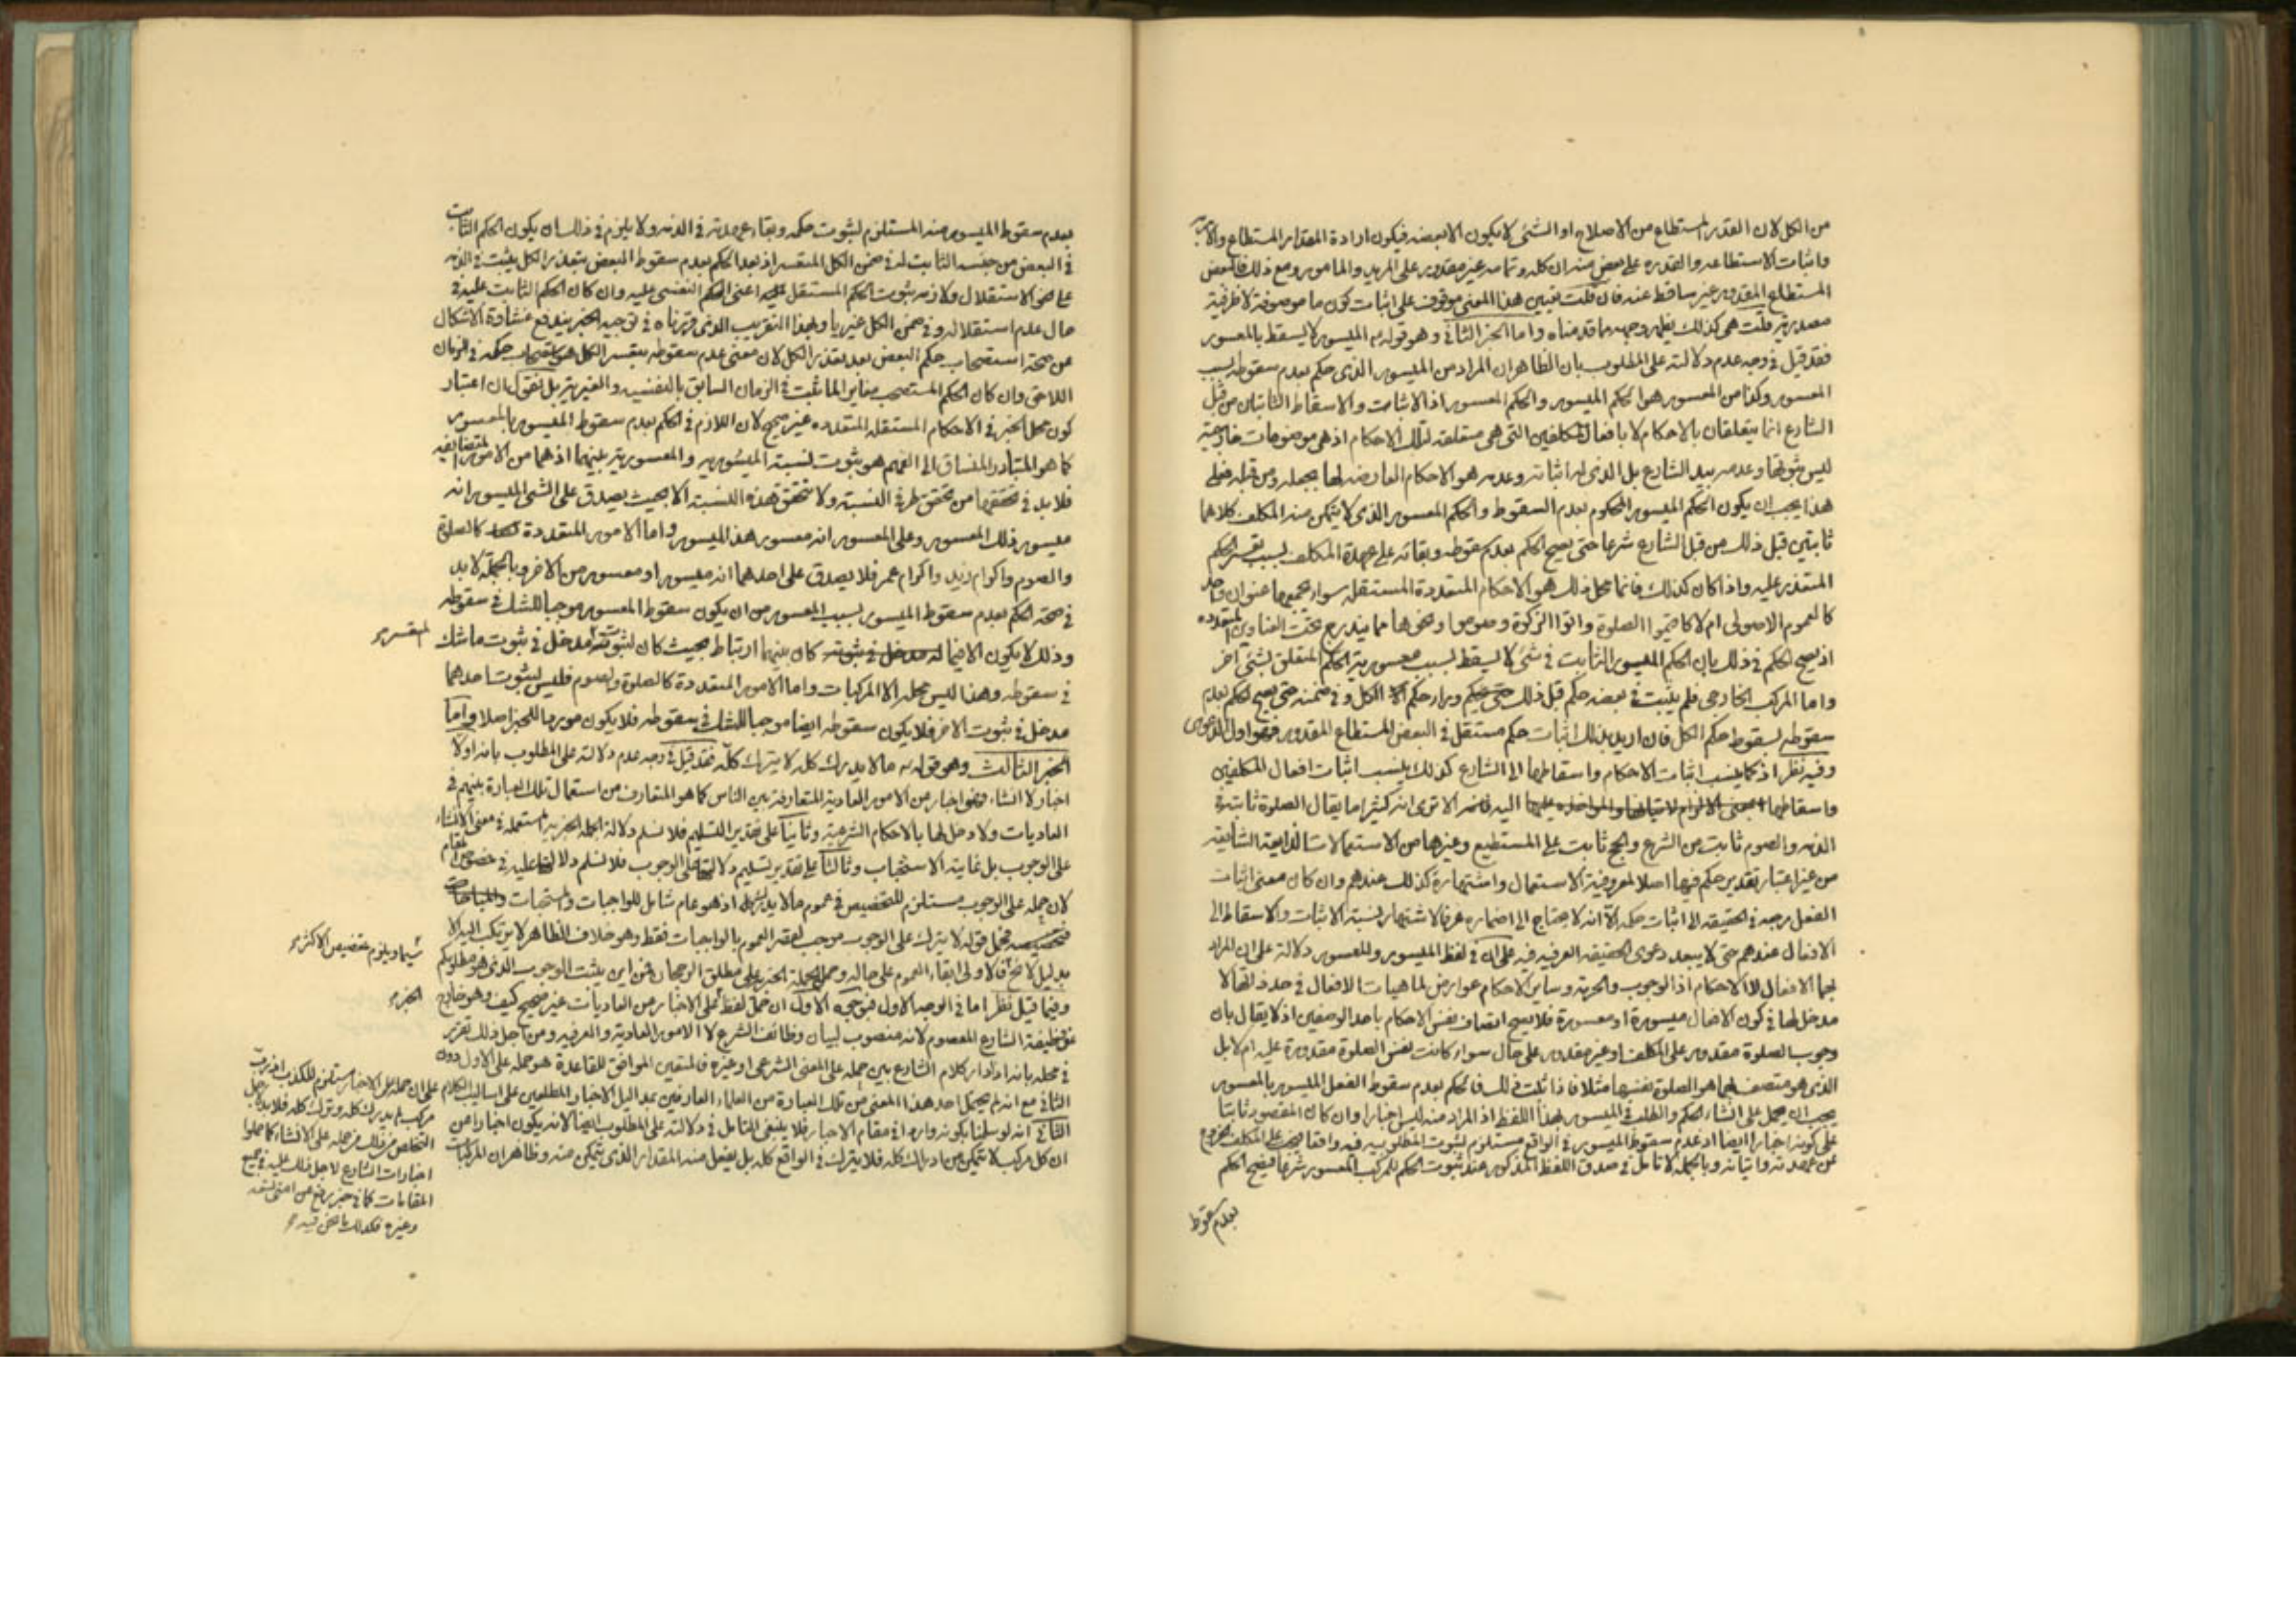 من الكل لان القدر المستطاع من الاصلاح او الشئ لا يكون الا بعضه فيكون ارادة المقدار المستطاع
واثبات الاستطاعه والقدره على بعض منه ان كله وتمامه غير مقدور على المريد والمامور ومع ذلك فالبعض
المستطاع المقدور غير ساقط عنه فان قلت تعيين هذا المعنى موقوف على اثبات كون ما موصوفة لا ظرفية
مصدرية قلت هى كذلك يظهر وجهه مما قدمناه واما الخبر الثانى وهو قوله ع الميسور لا يسقط بالمعسور
فقد قيل فى وجه عدم دلالته على المطلوب بان الظاهر ان المراد من الميسور الذى حكم بعدم سقوطه بسبب
المعسور وكذا من المعسور هو الحكم الميسور والحكم المعسور اذ الاثبات والاسقاط الثابتان من قبل
الشارع انما يتعلقان بالاحكام لا بافعال المكلفين التى هى متعلقه لتلك الاحكام اذ هى موضوعات خارجية
ليس ثبوتها وعدمه بيد الشارع بل الذى له اثباته وعدمه هو الاحكام العارضه لها بجعله ومن قبله فعلى
هذا يجب ان يكون الحكم الميسور المحكوم بعدم السقوط والحكم المعسور الذى لا يتمكن منه المكلف كلاهما
ثابتين قبل ذلك من قبل الشارع شرعا حتى يصح الحكم بعدم سقوطه وبقائه على عهدة المكلف بسبب تعسر الحكم
المتعذر عليه واذا كان كذلك فانما محل ذلك هو الاحكام المتعددة المستقله سواء جمعها عنوان واحد
كالعموم الاصولى ام لا كاقيموا الصلوة واتوا الزكوة وصوموا ونحوها مما يندرج تحت العناوين المتعدده
اذ يصح الحكم فى ذلك بان الحكم الميسور الثابت فى شئ لا يسقط بسبب معسورية الحكم المتعلق بشئ آخر
واما المركب الخارجى فلم يثبت فى بعضه حكم قبل ذلك وراء حكم الكل وفى ضمنه حتى يصح الحكم بعدم
سقوطه بسقوط حكم الكل فان اريد بذلك اثبات حكم مستقل فى البعض المستطاع المقدور فهو اول الدعوى
وفيه نظر اذ كما ينسب اثبات الاحكام واسقاطها الى الشارع كذلك ينسب اثبات افعال المكلفين
واسقاطها اليه الا ترى انه كثيرا ما يقال الصلوة ثابتة فى
الذمه والصوم ثابت من الشرع والحج ثابت على المستطيع وغيرها من الاستعمالات الذايعة الشايعه
من غير اعتبار تقدير حكم فيها اصلا لمعروفية الاستعمال واشتهاره كذلك عندهم وان كان معنى اثبات
الفعل يرجع فى الحقيقه الى اثبات حكمه الا انه لا يحتاج الى اضماره عرفا لاشتهار نسبة الاثبات والاسقاط الى
الافعال عندهم حتى لا يبعد دعوى الحقيقه العرفيه فيه على ان فى لفظ الميسور والمعسور دلالة على ان المراد
بهما الافعال لا الاحكام اذ الوجوب والحرمة وساير الاحكام عوارض لماهيات الافعال فى حد ذاتها لا
مدخل لها فى كون الافعال ميسورة او معسورة فلا يصح اتصاف نفس الاحكام باحد الوصفين اذ لا يقال بان
وجوب الصلوة مقدور على المكلف او غير مقدور على حال سواء كانت نفس الصلوة مقدورة عليه ام لا بل
الذى هو متصف بهما هو الصلوة نفسها مثلا فاذا ثبت ذلك فالحكم بعدم سقوط الفعل الميسور بالمعسور
يجب ان يحمل على انشاء الحكم والطلب فى الميسور بهذا اللفظ اذ المراد منه ليس اخبارا وان كان المقصود ثابتا
على كونه اخبارا ايضا اذ عدم سقوط الميسور فى الواقع مستلزم لثبوت المطلوبيه فيه
عن عهدته واتيانه وبالجمله لا تامل فى صدق اللفظ المذكور عند ثبوت الحكم للمركب المعسور شرعا فيصح الحكم
بعدم سقوط
بعدم سقوط الميسور منه المستلزم لثبوت حكمه وبقاء عهدته فى الذمه ولا يلزم فى ذلك ان يكون الحكم الثابت
فى البعض من جنسه الثابت له فى ضمن الكل المتعسر اذ بعد الحكم بعدم سقوط البعض بتعذر الكل يثبت فى الذمه
على نحو الاستقلال ولازمه ثبوت الحكم المستقل عليه اعنى الحكم النفسى عليه وان كان الحكم الثابت عليه فى
حال عدم استقلاله وفى ضمن الكل غيريا وبهذا التقريب الذى قررناه فى توجيه الخبر يندفع غشاوة الاشكال
عن صحة استصحاب حكم البعض بعد تعذر الكل لان معنى عدم سقوطه بتعسر الكل هو استصحاب حكمه فى الزمان
اللاحق وان كان الحكم المستصحب مغايرا لما ثبت فى الزمان السابق بالنفسيه والغيريه بل نقول ان اعتبار
كون محل الخبر فى الاحكام المستقله المتعدده غير صحيح لان اللازم فى الحكم بعدم سقوط الميسور بالمعسور
كما هو المتبادر المنساق الى الفهم هو ثبوت نسبة الميسوريه والمعسوريه بينهما اذ هما من الامور المتضايفه
فلا بد فى تحققهما من تحقق طرفى النسبة ولا تتحقق هذه النسبة الا بحيث يصدق على الشئ الميسور انه
ميسور ذلك المعسور وعلى المعسور انه معسور هذا الميسور واما الامور المتعددة كالصلوة
والصوم واكرام زيد واكرام عمر فلا يصدق على احدهما انه ميسور او معسور من الاخر وبالجمله لا بد
فى صحة الحكم بعدم سقوط الميسور بسبب المعسور من ان يكون سقوط المعسور موجبا للشك فى سقوطه
وذلك لا يكون الا فيما كان بينهما ارتباط بحيث كان لثبوته مدخل فى ثبوت ما شك
المتعسر
فى سقوطه وهذا ليس محله الا المركبات واما الامور المتعددة كالصلوة والصوم فليس لثبوت احدهما
مدخل فى ثبوت الاخر فلا يكون سقوطه ايضا موجبا للشك فى سقوطه فلا يكون موردا للخبر اصلا واما
الخبر الثالث وهو قوله ع ما لا يدرك كله لا يترك كله فقد قيل فى وجه عدم دلالته على المطلوب بانه اولا
اخبار لا انشاء وهو اخبار من الامور العادية المتعارفة بين الناس كما هو المتعارف من استعمال تلك العبارة بينهم فى
العاديات ولا دخل لها بالاحكام الشرعية وثانيا على تقدير التسليم فلا نسلم دلالة الجملة الخبريه المستعمله فى معنى الانشاء
على الوجوب بل غايته الاستحباب وثالثا على تقدير تسليم دلالتها على الوجوب فلا نسلم دلالتها عليه فى خصوص المقام
لان حمله على الوجوب مستلزم للتخصيص فى عموم ما لا يدرك اذ هو عام شامل للواجبات والمستحبات والمباحات
فحمل قوله لا يترك على الوجوب موجب لقصر العموم بالواجبات فقط وهو خلاف الظاهر لا يرتكب اليه الا
سيما ويلزم تخصيص الاكثر
بدليل لائح فالاولى ابقاء العموم على حاله وحمل الجملة الخبريه على مطلق الرجحان فمن اين يثبت الوجوب الذى هو مطلوبكم
وفيما قيل نظر اما فى الوجه الاول فبوجوه الاول ان حمل لفظ على الاخبار من العاديات غير صحيح كيف وهو خارج
الخبر
عن وظيفة الشارع المعصوم لانه منصوب لبيان وظائف الشرع لا الامور العادية والعرفيه ومن اجل ذلك تقرر
فى محله بانه اذا دار كلام الشارع بين حمله على المعنى الشرعى او غيره فالمتعين الموافق للقاعدة هو حمله على الاول دون
الثانى مع انه لم يحتمل احد هذا المعنى من تلك العبارة من العلماء العارفين بمداليل الاخبار المطلعين على اساليب الكلام
الثانى انه لو سلمنا بكونه واردا فى مقام الاخبار فلا ينبغى التامل فى دلالته على المطلوب ايضا لانه يكون اخبارا عن
ان كل مركب لا يتمكن من ادراك كله فلا يترك فى الواقع كله بل يفعل منه المقدار الذى يتمكن منه وظاهر ان المركبات
على ان حمله على الاخبار مستلزم للكذب اذ رب
مركب لم يدرك كله وترك كله فلا بد
التخلص من ذلك من حمله على الانشاء كما حملوا
اخبارات الشارع لاجل ذلك عليه فى جميع
المقامات كما فى خبر رفع عن امتى تسعه
وغيره فكذلك ما نحن فيه